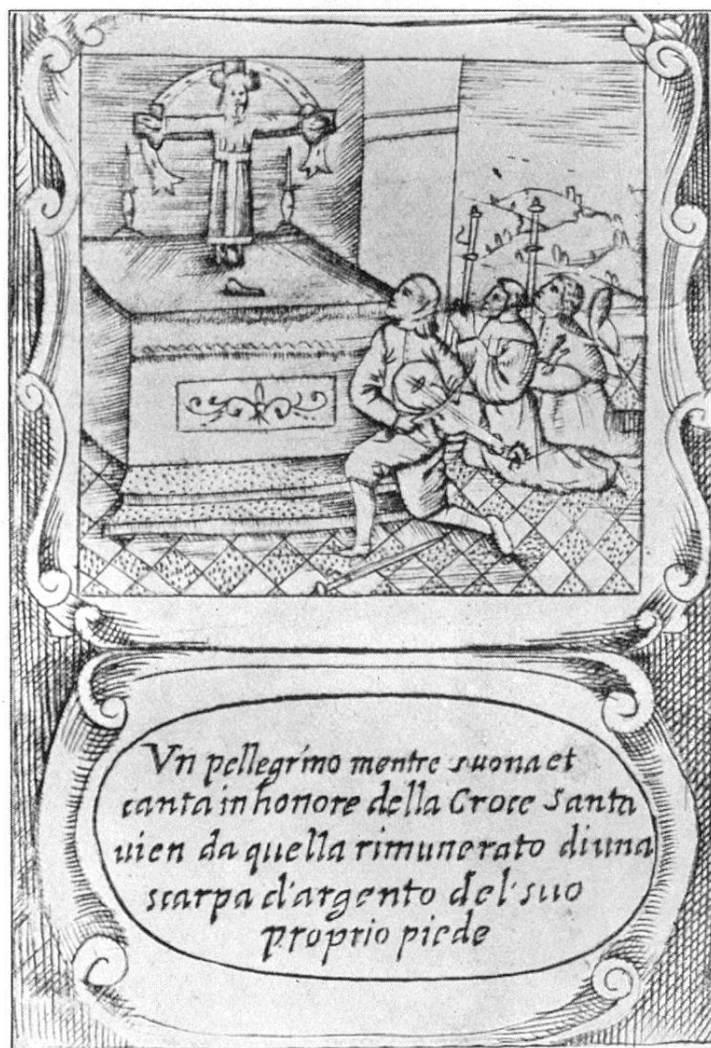 Vn pellegrino mentre suona et
canta in honore della Croce Santa
uien da quella rimunerato di una
scarpa d'argento del suo
proprio piede